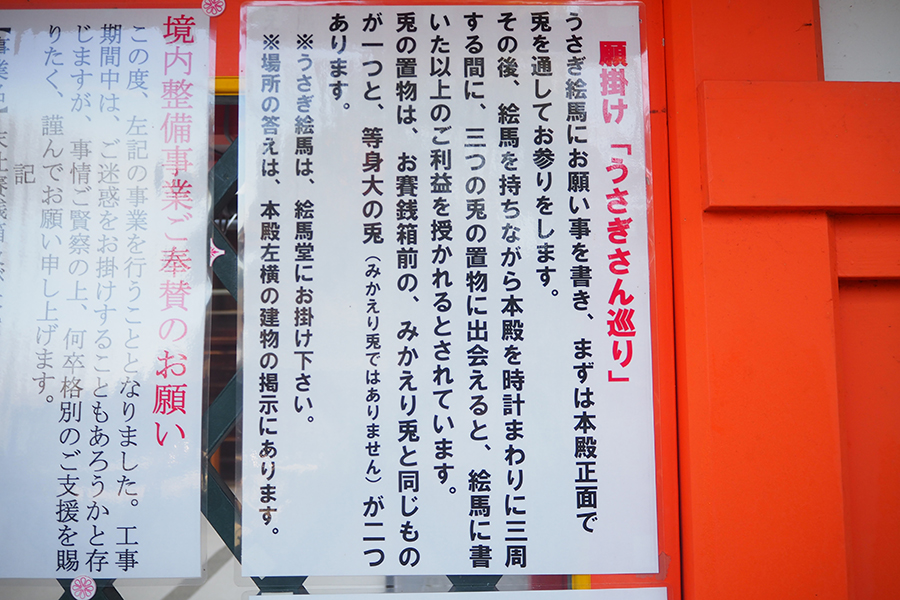 願掛け「うさぎさん巡り」
うさぎ絵馬にお願い事を書き、まずは本殿正面で
兎を通してお参りをします。
その後、絵馬を持ちながら本殿を時計まわりに三周
する間に、三つの兎の置物に出会えると、絵馬に書
いた以上のご利益を授かれるとされています。
兎の置物は、お賽銭箱前の、みかえり兎と同じもの
が一つと、等身大の兎（みかえり兎ではありません）が二つ
あります。
※うさぎ絵馬は、絵馬堂にお掛け下さい。
※場所の答えは、本殿左横の建物の掲示にあります。
境内整備事業ご奉賛のお願い
この度、左記の事業を行うこととなりました。工事
期間中は、ご迷惑をお掛けすることもあろうかと存
じますが、事情ご賢察の上、何卒格別のご支援を賜
りたく、謹んでお願い申し上げます。
記